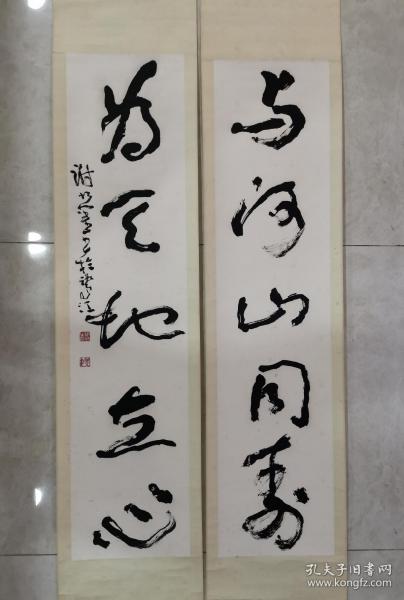 与河山同寿
为天地立心
孔夫子旧书网
www.kongfz.com